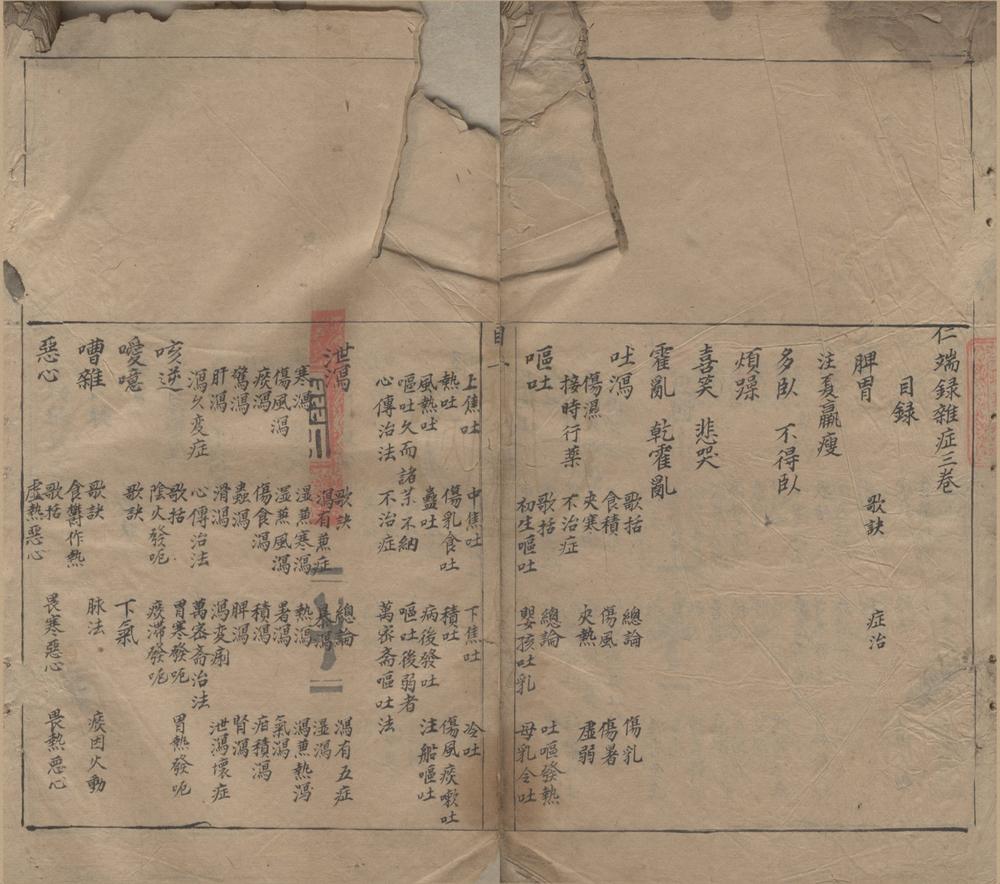 仁端録雜症三卷
目録
脾胃 歌訣 症治
注夏羸瘦
多臥 不得臥
煩躁
喜笑 悲哭
霍亂 乾霍亂
吐瀉 歌括 總論 傷乳
傷濕 食積 傷風 傷暑
夾寒 夾熱 虛弱
接時行藥 不治症
嘔吐 歌括 總論 吐嘔發熱
初生嘔吐 嬰孩吐乳 母乳令吐
目
上焦吐 中焦吐 下焦吐 冷吐
熱吐 傷乳食吐 積吐 傷風痰嗽吐
風熱吐 蟲吐 病後發吐 注船嘔吐
嘔吐久而諸藥不納 嘔吐後弱者
心傳治法 不治症 萬密齋嘔吐法
泄瀉 歌訣 總論 瀉有五症
瀉有兼症 暴瀉 濕瀉
寒瀉 湿兼寒瀉 熱瀉 瀉兼熱瀉
傷風瀉 湿兼風瀉 暑瀉 氣瀉
痰瀉 傷食瀉 積瀉 疳積瀉
驚瀉 蟲瀉 脾瀉 腎瀉
肝瀉 滑瀉 瀉変痢 泄瀉壞症
瀉久変症 心傳治法 萬密齋治法
咳逆 歌括 胃寒發呃 胃熱發呃
陰火發呃 痰滞發呃
噯噫 歌訣 下氣
嘈雜 歌訣 脉法 痰因火動
食鬱作熱
惡心 歌括 畏寒惡心 畏熱惡心
虛熱惡心